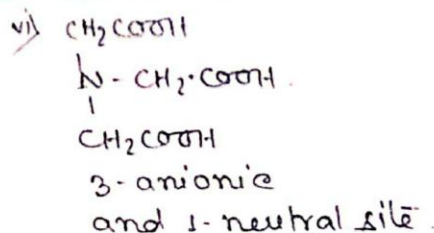 vi) CH₂COOH
N - CH₂·COOH.
CH₂COOH
3-anionic
and 1-neutral site.